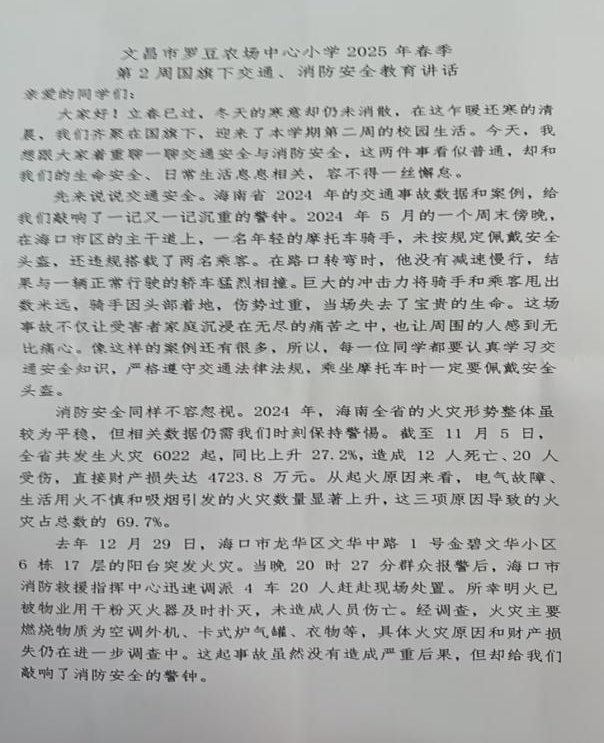 文昌市罗豆农场中心小学 2025 年春季
第 2 周国旗下交通、消防安全教育讲话
亲爱的同学们：
大家好！立春已过，冬天的寒意却仍未消散，在这乍暖还寒的清
晨，我们齐聚在国旗下，迎来了本学期第二周的校园生活。今天，我
想跟大家着重聊一聊交通安全与消防安全，这两件事看似普通，却和
我们的生命安全、日常生活息息相关，容不得一丝懈怠。
先来说说交通安全。海南省 2024 年的交通事故数据和案例，给
我们敲响了一记又一记沉重的警钟。2024 年 5 月的一个周末傍晚，
在海口市区的主干道上，一名年轻的摩托车骑手，未按规定佩戴安全
头盔，还违规搭载了两名乘客。在路口转弯时，他没有减速慢行，结
果与一辆正常行驶的轿车猛烈相撞。巨大的冲击力将骑手和乘客甩出
数米远，骑手因头部着地，伤势过重，当场失去了宝贵的生命。这场
事故不仅让受害者家庭沉浸在无尽的痛苦之中，也让周围的人感到无
比痛心。像这样的案例还有很多，所以，每一位同学都要认真学习交
通安全知识，严格遵守交通法律法规，乘坐摩托车时一定要佩戴安全
头盔。
消防安全同样不容忽视。2024 年，海南全省的火灾形势整体虽
较为平稳，但相关数据仍需我们时刻保持警惕。截至 11 月 5 日，
全省共发生火灾 6022 起，同比上升 27.2%，造成 12 人死亡、20 人
受伤，直接财产损失达 4723.8 万元。从起火原因来看，电气故障、
生活用火不慎和吸烟引发的火灾数量显著上升，这三项原因导致的火
灾占总数的 69.7%。
去年 12 月 29 日，海口市龙华区文华中路 1 号金碧文华小区
6 栋 17 层的阳台突发火灾。当晚 20 时 27 分群众报警后，海口市
消防救援指挥中心迅速调派 4 车 20 人赶赴现场处置。所幸明火已
被物业用干粉灭火器及时扑灭，未造成人员伤亡。经调查，火灾主要
燃烧物质为空调外机、卡式炉气罐、衣物等，具体火灾原因和财产损
失仍在进一步调查中。这起事故虽然没有造成严重后果，但却给我们
敲响了消防安全的警钟。